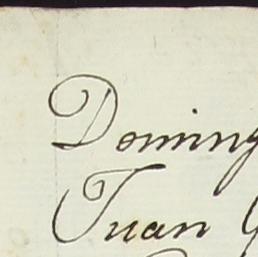 Doming
Juan